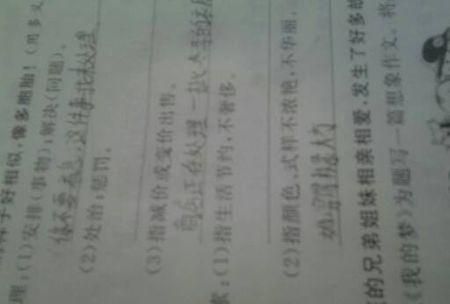 样子好相似,像多胞胎!(用多义
理:(1)安排(事物);解决(问题)。
你不要着急,这件事我来处理
(2)处治;惩罚。
(3)指减价或变价出售。
商店正在处理一批冬季的衣服
(1)指生活节约,不奢侈。
(2)指颜色、式样不浓艳,不华丽。
她穿得
的兄弟姐妹相亲相爱,发生了好多的
《我的梦》为题写一篇想象作文。将